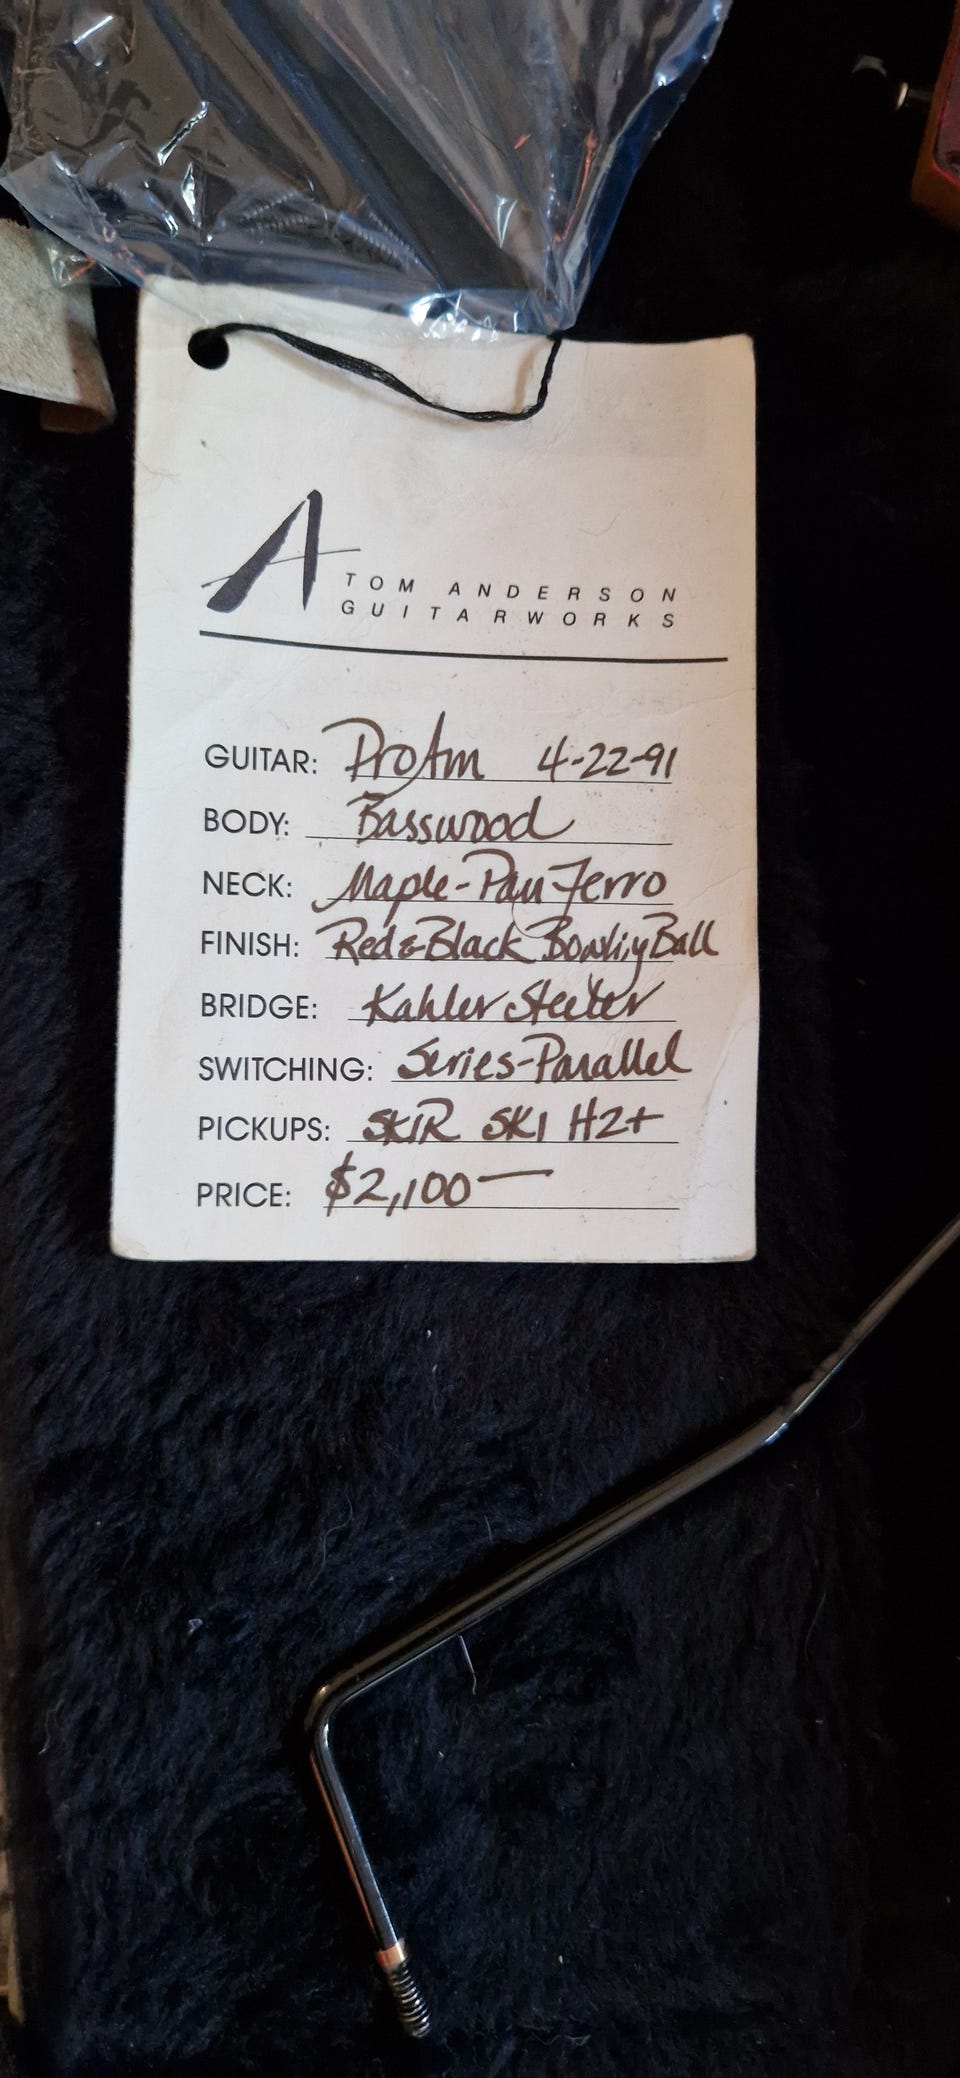 TOM ANDERSON
GUITARWORKS
GUITAR: ProAm 4-22-91
BODY: Basswood
NECK: Maple-Pau Ferro
FINISH: Red & Black Bowling Ball
BRIDGE: Kahler Steeler
SWITCHING: Series-Parallel
PICKUPS: SK1R SK1 H2+
PRICE: $2,100—